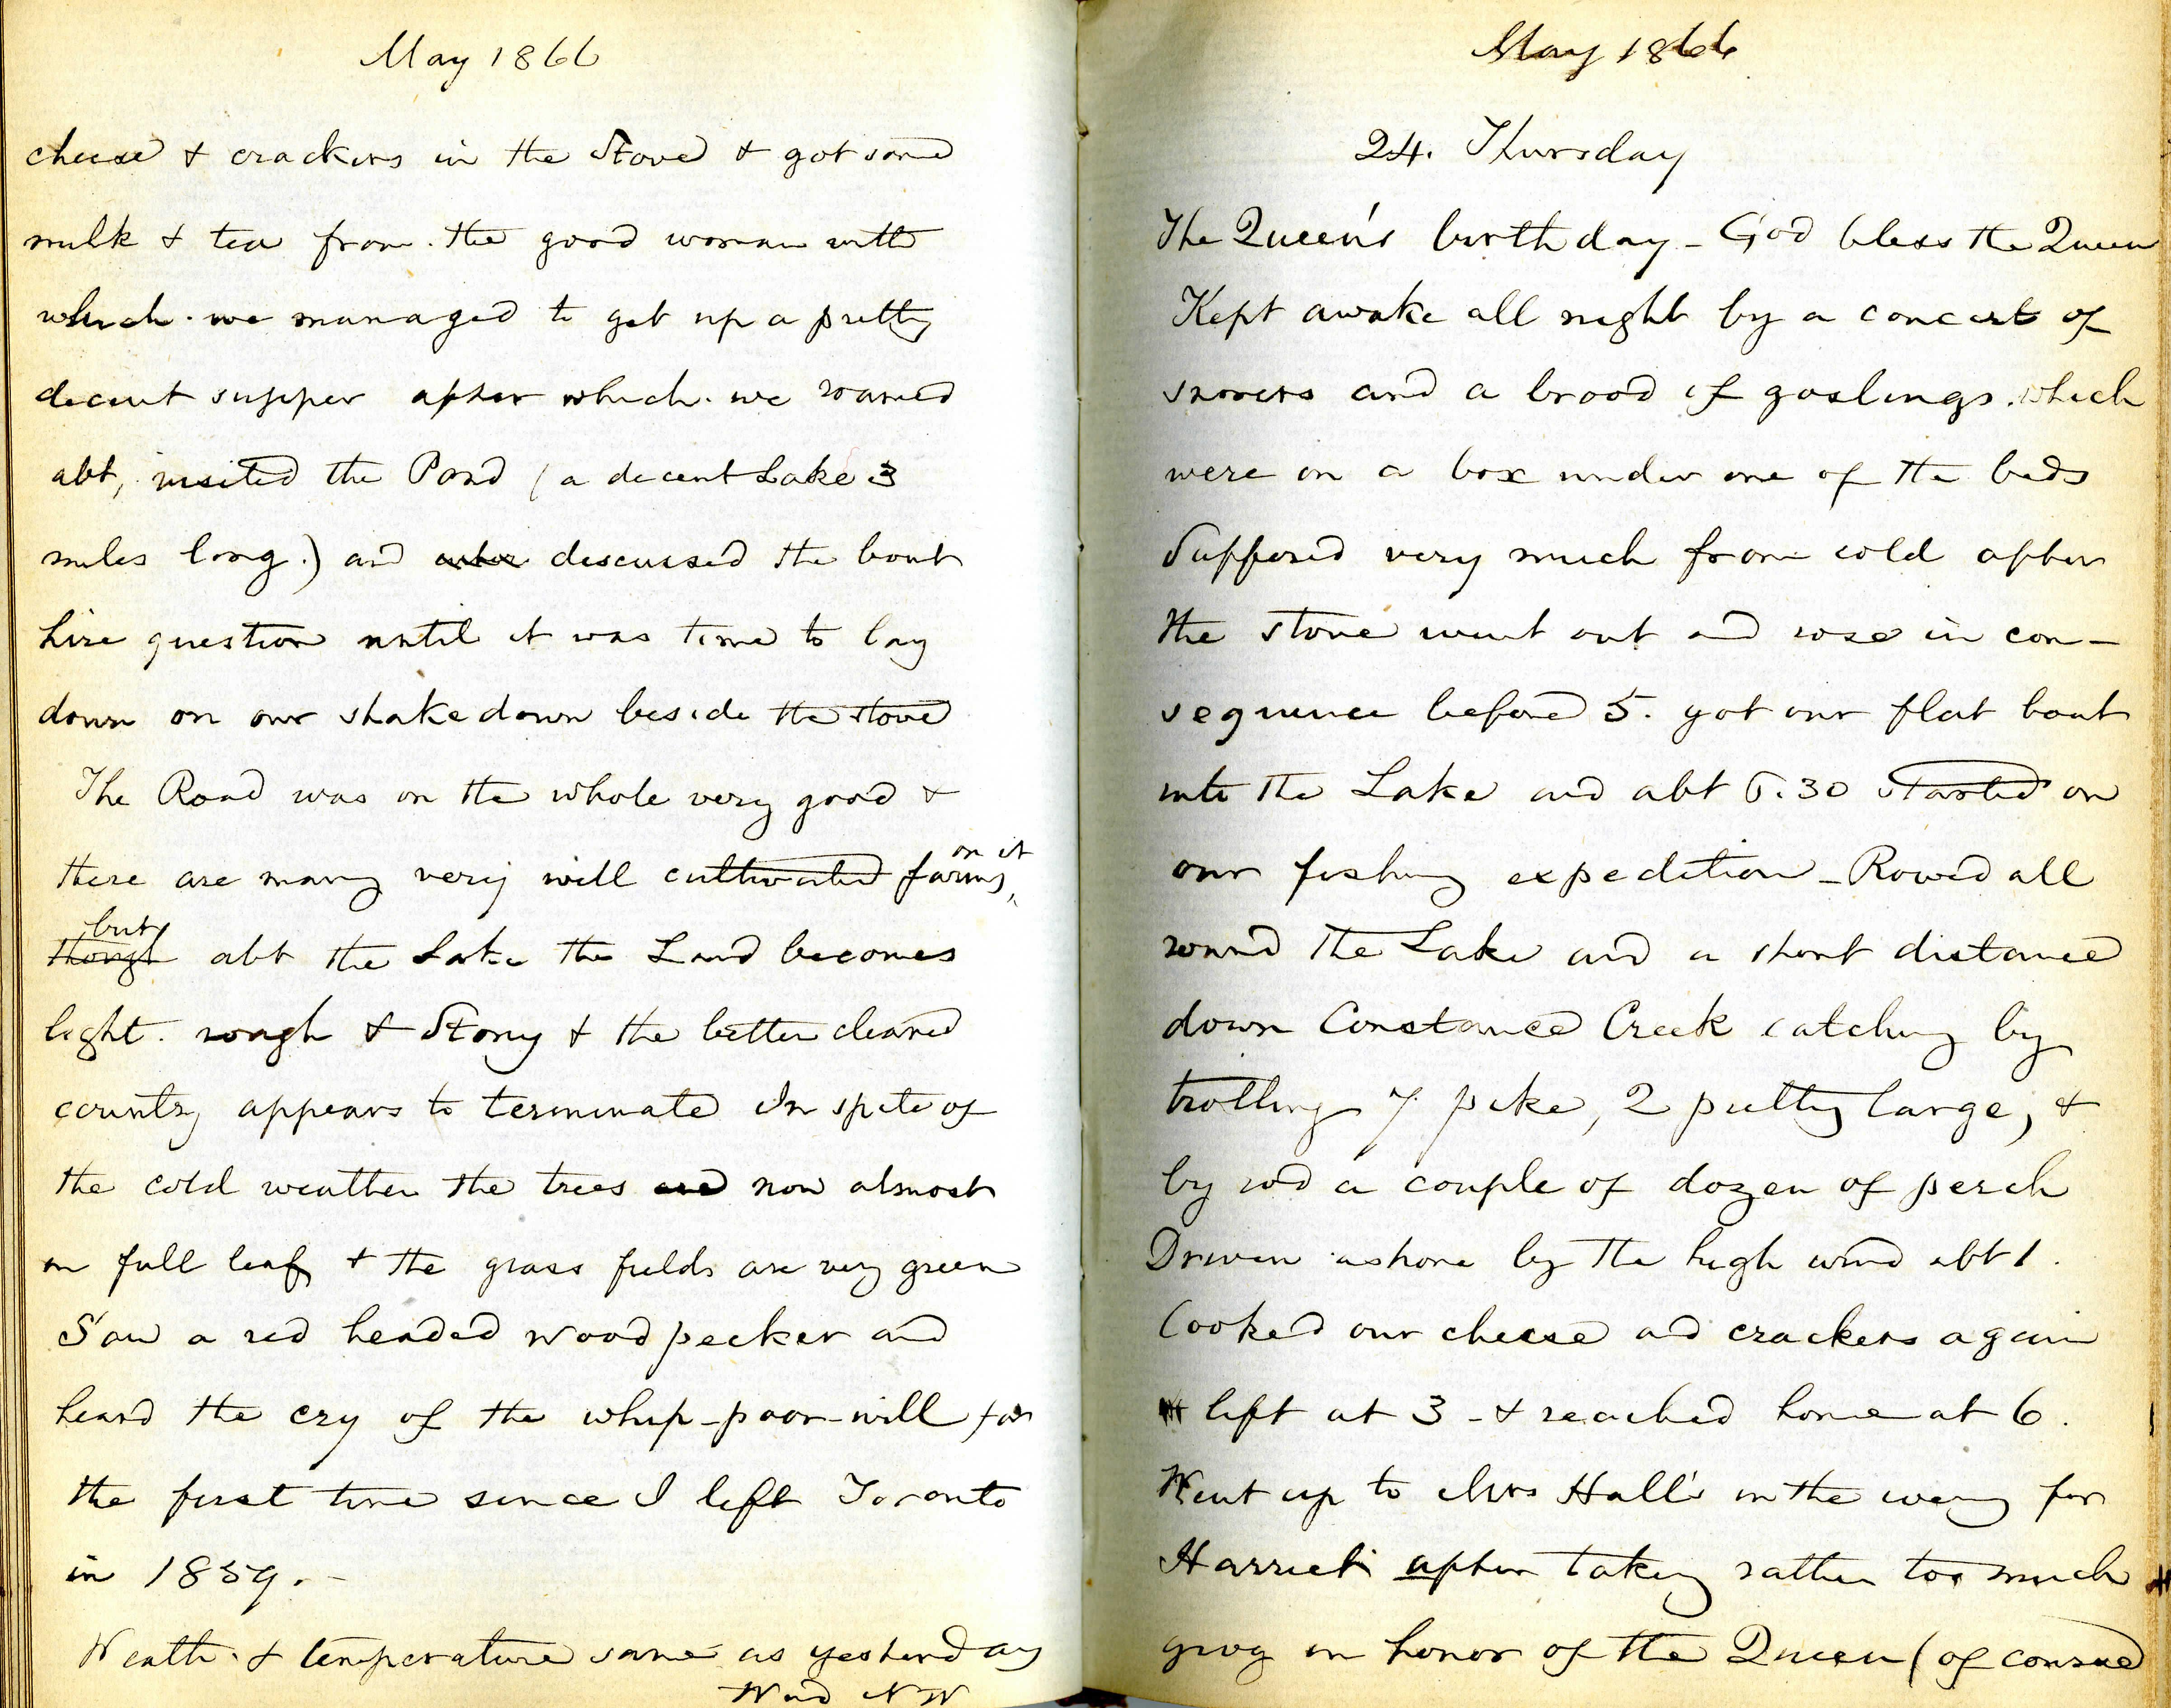 May 1866
cheese & crackers in the Stove & got some
milk & tea from the good woman with
which we managed to get up a pretty
decent supper after which we roamed
abt, visited the Pond (a decent Lake 3
miles long.) and discussed the boat
hire question until it was time to lay
down on our shake down beside the stove
The Road was on the whole very good &
on it
there are many very well cultivated farms,
but
though abt the Lake the Land becomes
light. rough & Stony & the better cleared
country appears to terminate In spite of
the cold weather the trees are now almost
in full leaf & the grass fields are very green
Saw a red headed wood pecker and
heard the cry of the whip-poor-will for
the first time since I left Toronto
in 1859.-
Weath. & temperature same as yesterday
Wind NW
May 1866
24. Thursday
The Queen's birthday - God bless the Queen
Kept awake all night by a concert of
snorers and a brood of goslings which
were in a box under one of the beds
Suffered very much from cold after
the stove went out and rose in con-
sequence before 5. got our flat boat
into the Lake and abt 5.30 started on
our fishing expedition - Rowed all
round the Lake and a short distance
down Constance Creek catching by
trolling 7 pike, 2 pretty large, &
by rod a couple of dozen of perch
Driven ashore by the high wind abt 1.
Cooked our cheese and crackers again
left at 3 - & reached home at 6.
Went up to Mrs Hall's in the eveng for
Harriet after taking rather too much
grog in honor of the Queen (of course